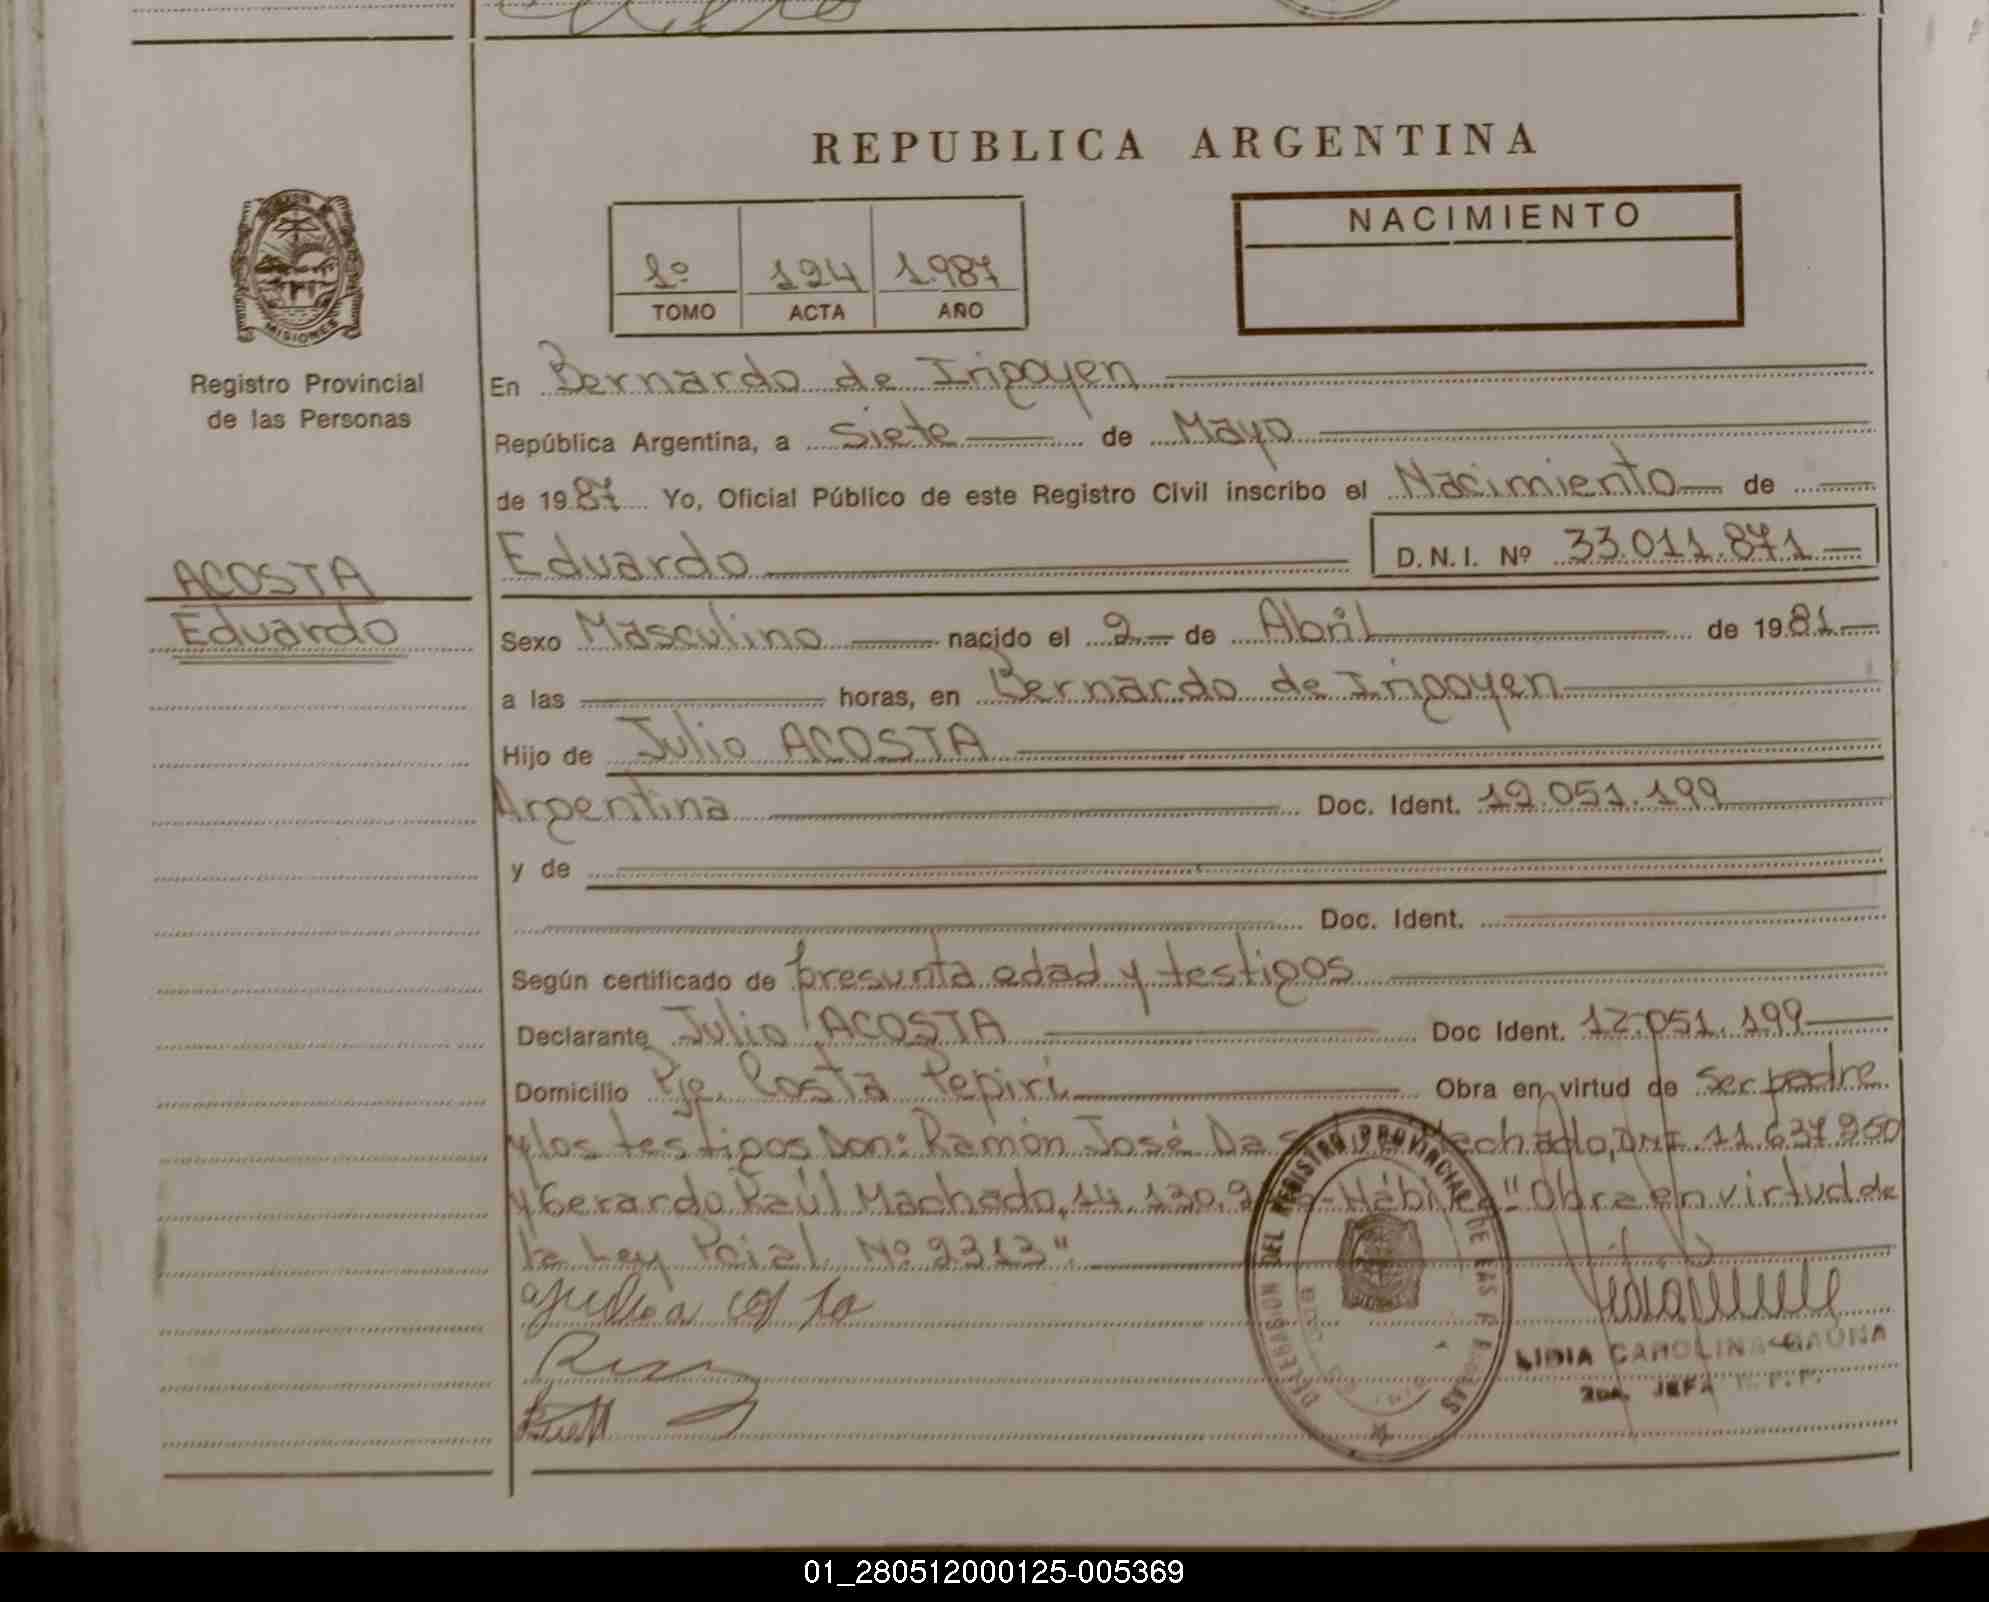 REPUBLICA ARGENTINA
1º 124 1.987
TOMO ACTA AÑO
NACIMIENTO
MISIONES
Registro Provincial
de las Personas
ACOSTA
Eduardo
En Bernardo de Irigoyen
República Argentina, a Siete de Mayo
de 1987 Yo, Oficial Público de este Registro Civil inscribo el Nacimiento de
Eduardo D.N.I. Nº 33.011.871
Sexo Masculino nacido el 2 de Abril de 1981
a las horas, en Bernardo de Irigoyen
Hijo de Julio ACOSTA
Argentina Doc. Ident. 12.051.199
y de
Doc. Ident.
Según certificado de presunta edad y testigos
Declarante Julio ACOSTA Doc Ident. 12.051.199
Domicilio Pje. Costa Pepirí Obra en virtud de ser padre
y los testigos Don: Ramón José Da Machado, DNI. 11.637.950
y Gerardo Raúl Machado, 14.130. Hábiles "Obra en virtud de
la Ley Pcial. Nº 2313".
DELEGACION DEL REGISTRO PROVINCIAL DE LAS PERSONAS
LIDIA CAROLINA GAUNA
2da. JEFA R.P.P.
01_280512000125-005369